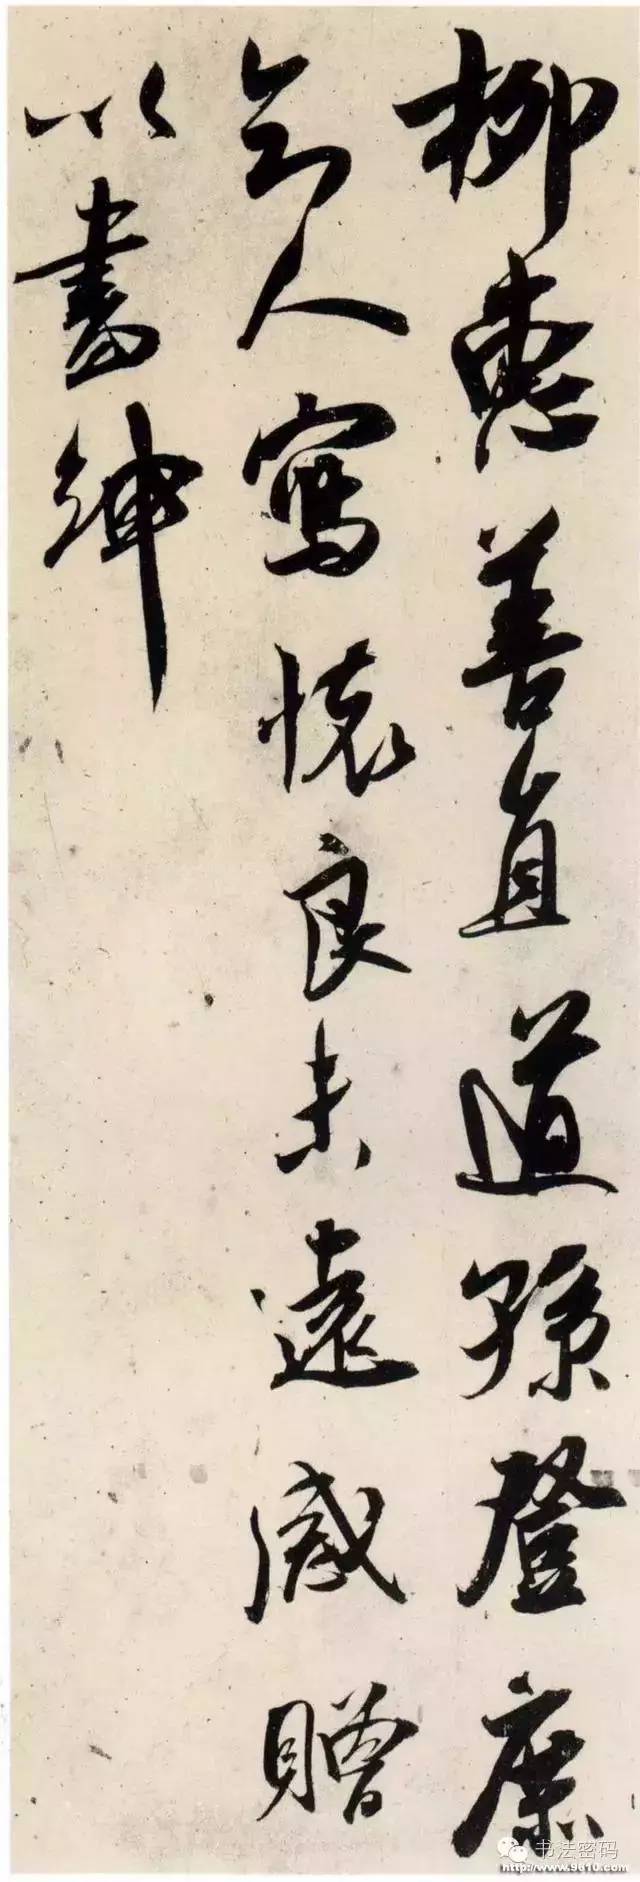 柳惠善直道孫登庶
知人寫懷良未遠感贈
以書紳
书法密码
http://www.9610.com